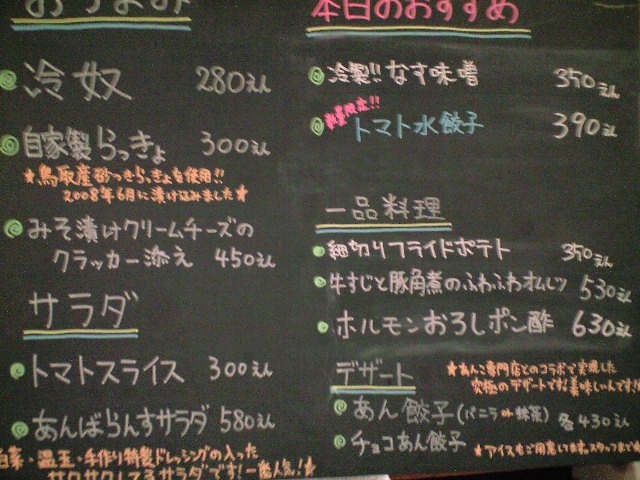 おつまみ
冷奴 280えん
自家製らっきょ 300えん
★鳥取産砂つきらっきょを使用!!
2008年6月に漬け込みました★
みそ漬けクリームチーズの
クラッカー添え 450えん
サラダ
トマトスライス 300えん
あんばらんすサラダ 580えん
白菜・温玉・手作り特製ドレッシングの入った
サクサクしてるサラダです!一番人気!★
本日のおすすめ
冷製!!なす味噌 350えん
数量限定!!
トマト水餃子 390えん
一品料理
細切りフライドポテト 350えん
牛すじと豚角煮のふわふわオムレツ 530えん
ホルモンおろしポン酢 630えん
デザート
★あんこ専門店とのコラボで実現した
究極のデザートです。美味しいんです!!
あん餃子(バニラor抹茶) 各430えん
チョコあん餃子
★アイスもご用意してます。スタッフまで